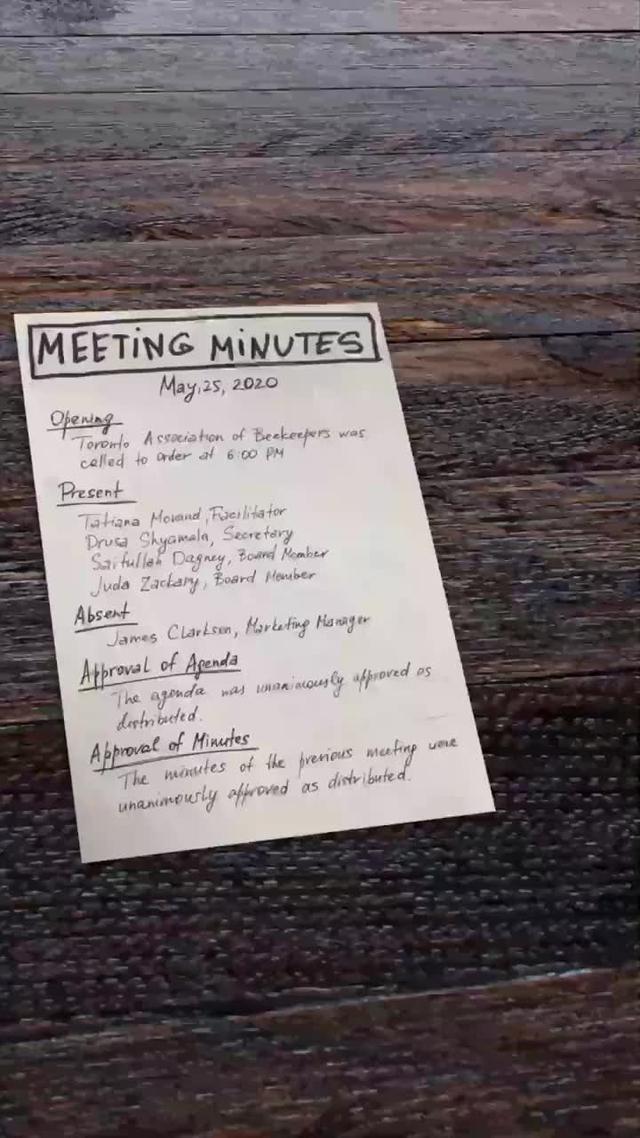 MEETING MINUTES
May, 25, 2020
Opening
Toronto Association of Beekeepers was
called to order at 6:00 PM
Present
Tatiana Morand, Facilitator
Drusa Shyamala, Secretary
Saifullah Dagney, Board Member
Juda Zackary, Board Member
Absent
James Clarkson, Marketing Manager
Approval of Agenda
The agenda was unanimously approved as
distributed.
Approval of Minutes
The minutes of the previous meeting were
unanimously approved as distributed.